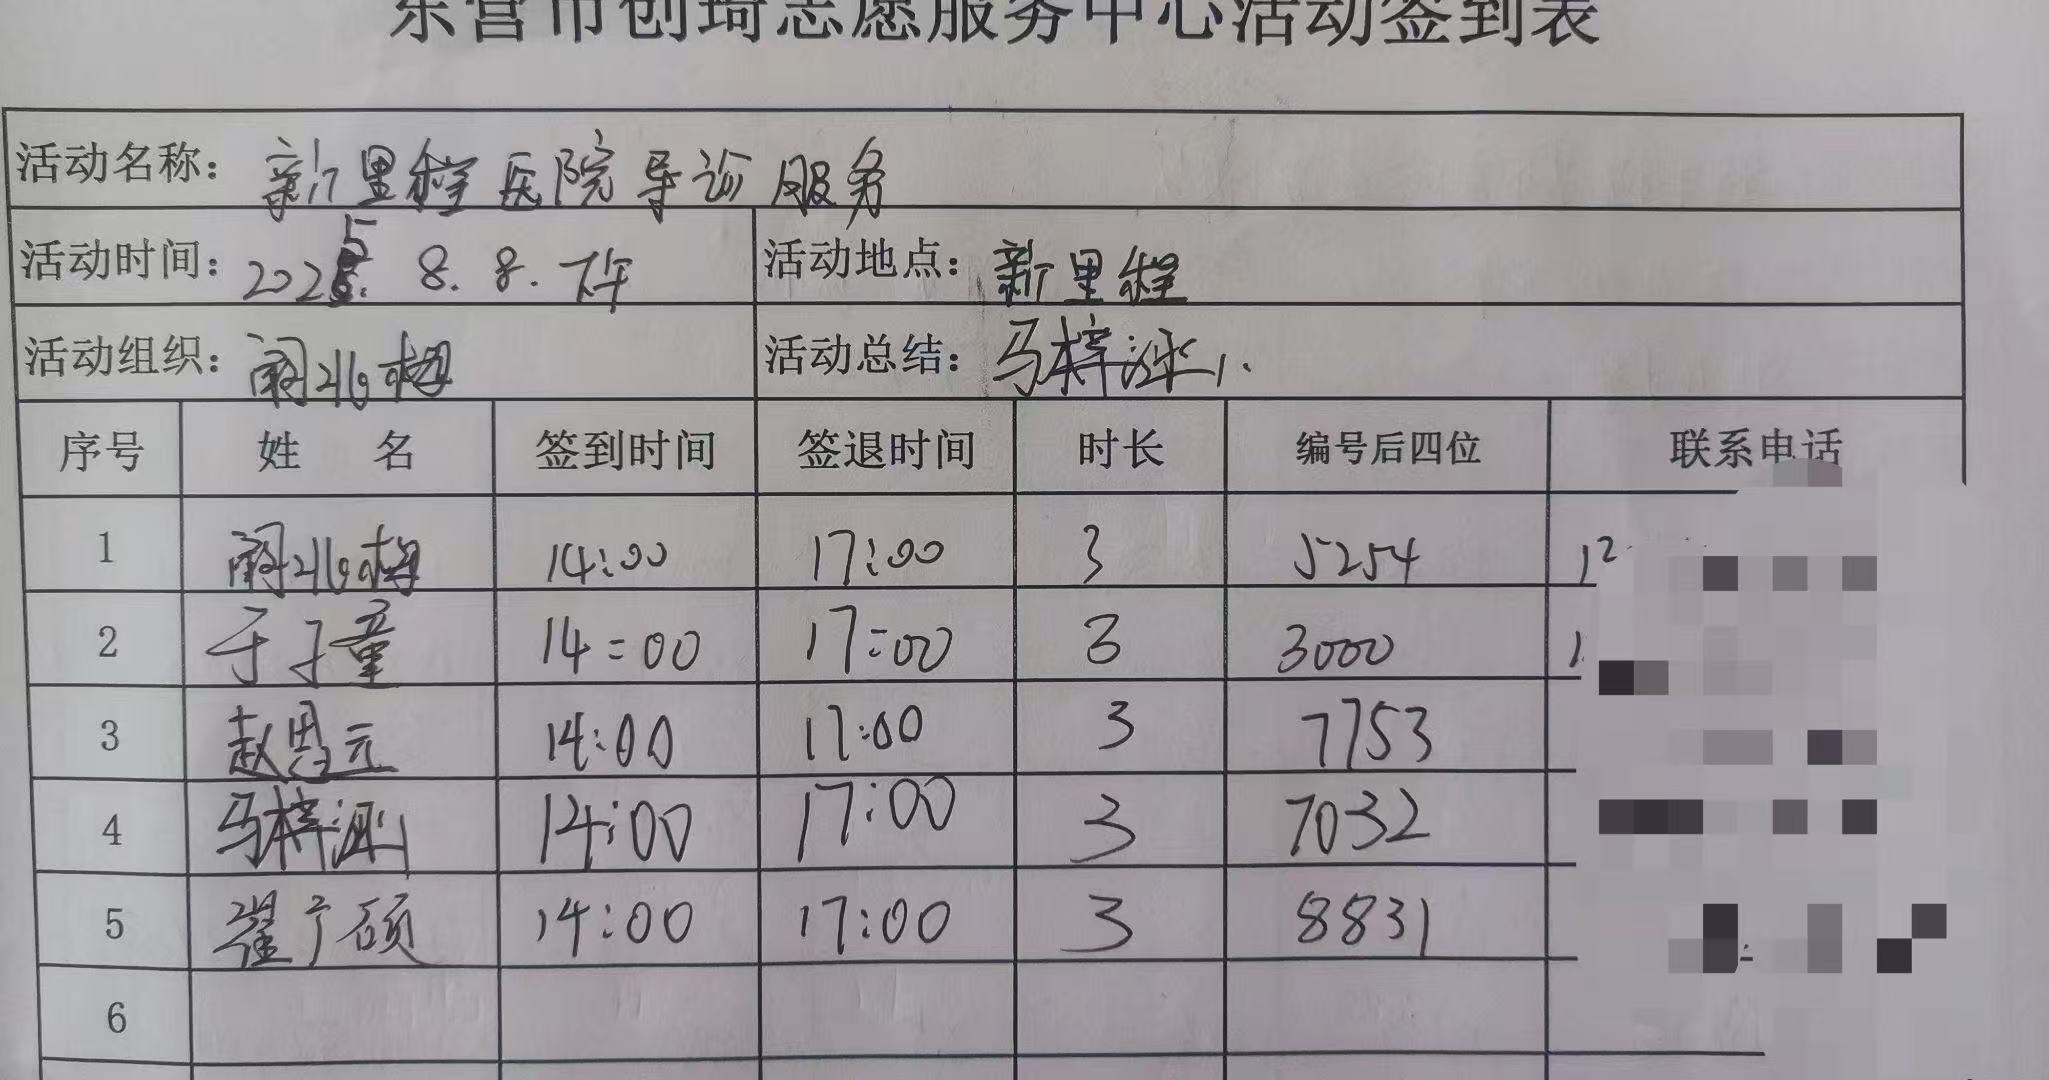 东营市创琦志愿服务中心活动签到表
活动名称：新里程医院导诊服务
活动时间：2025. 8. 8. 下午 活动地点：新里程
活动组织： 活动总结：马梓
序号 姓 名 签到时间 签退时间 时长 编号后四位 联系电话
1 14:00 17:00 3 5254
2 于子童 14:00 17:00 3 3000
3 赵恩元 14:00 17:00 3 7753
4 马梓 14:00 17:00 3 7032
5 翟广硕 14:00 17:00 3 8831
6